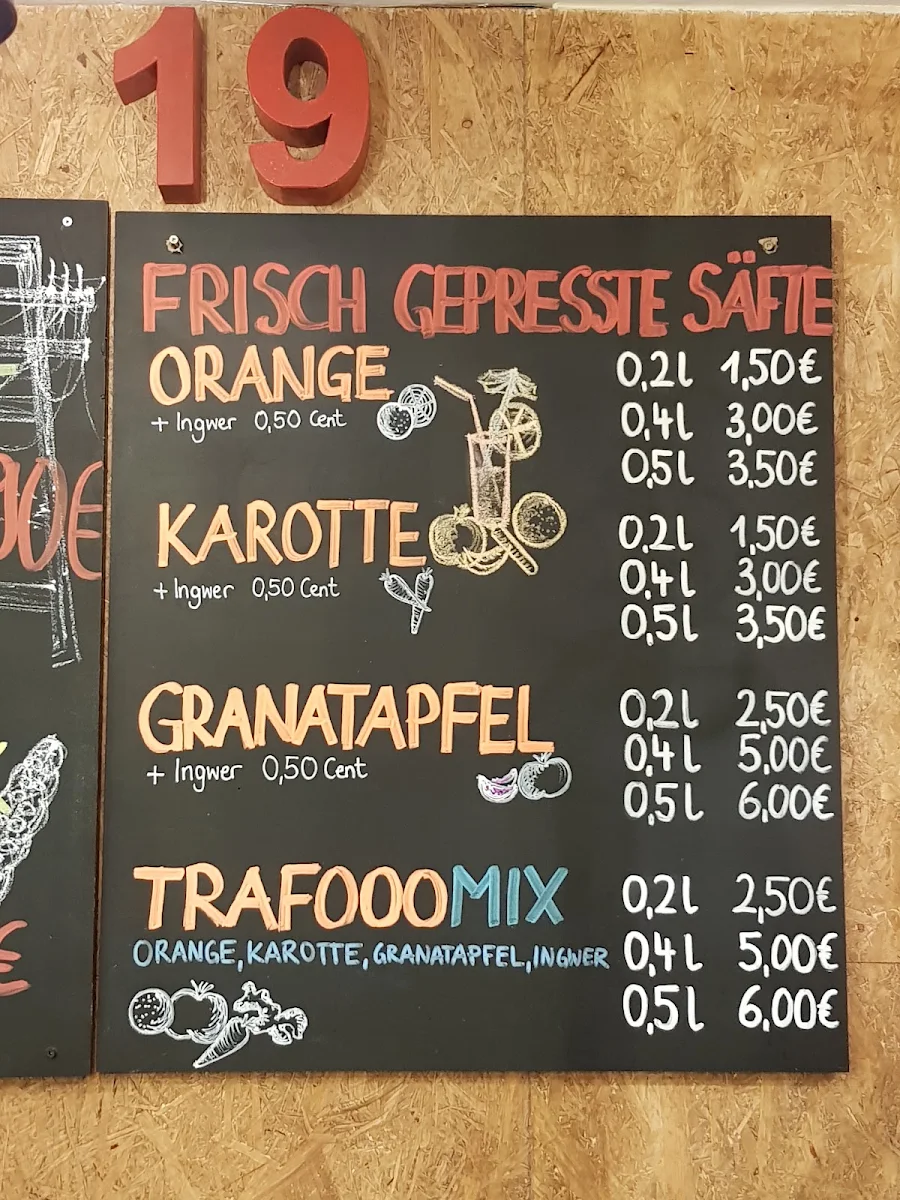 19
FRISCH GEPRESSTE SÄFTE
ORANGE 0,2l 1,50€
+ Ingwer 0,50 Cent 0,4l 3,00€
0,5l 3,50€
KAROTTE 0,2l 1,50€
+ Ingwer 0,50 Cent 0,4l 3,00€
0,5l 3,50€
GRANATAPFEL 0,2l 2,50€
+ Ingwer 0,50 Cent 0,4l 5,00€
0,5l 6,00€
TRAFOOOMIX 0,2l 2,50€
ORANGE, KAROTTE, GRANATAPFEL, INGWER 0,4l 5,00€
0,5l 6,00€